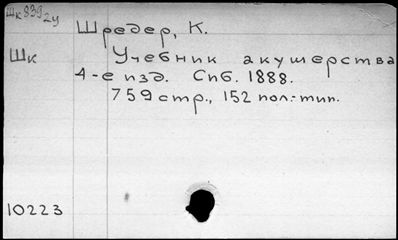 Шк 839
24
Шредер, К.
Шк
Учебник акушерства
4-е изд. Спб. 1888.
759 стр., 152 пол.-тип.
10223